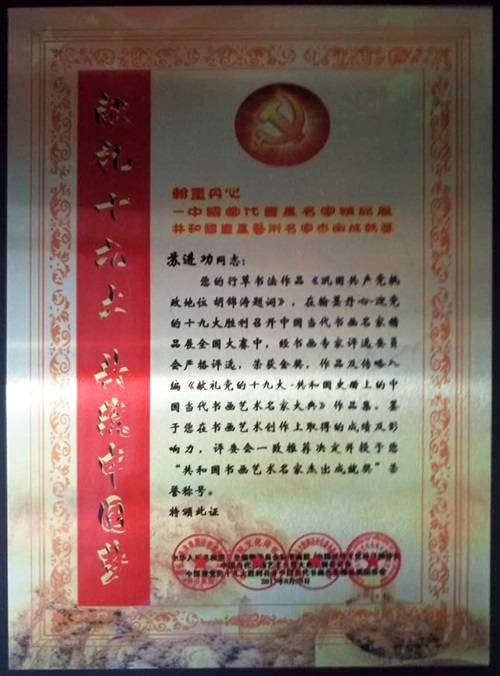 献礼十九大 共筑中国梦
翰墨丹心
—中國當代書畫名家精品展
共和國書畫藝術名家杰出成就獎
苏进功同志：
您的行草书法作品《巩固共产党执
政地位 胡锦涛题词》，在翰墨丹心·迎党
的十九大胜利召开中国当代书画名家精
品展全国大赛中，经书画专家评选委员
会严格评选，荣获金奖，作品及传略入
编《献礼党的十九大·共和国史册上的中
国当代书画艺术名家大典》作品集。鉴
于您在书画艺术创作上取得的成绩及影
响力，评委会一致推荐决定并授予您
“共和国书画艺术名家杰出成就奖”荣
誉称号。
特颁此证